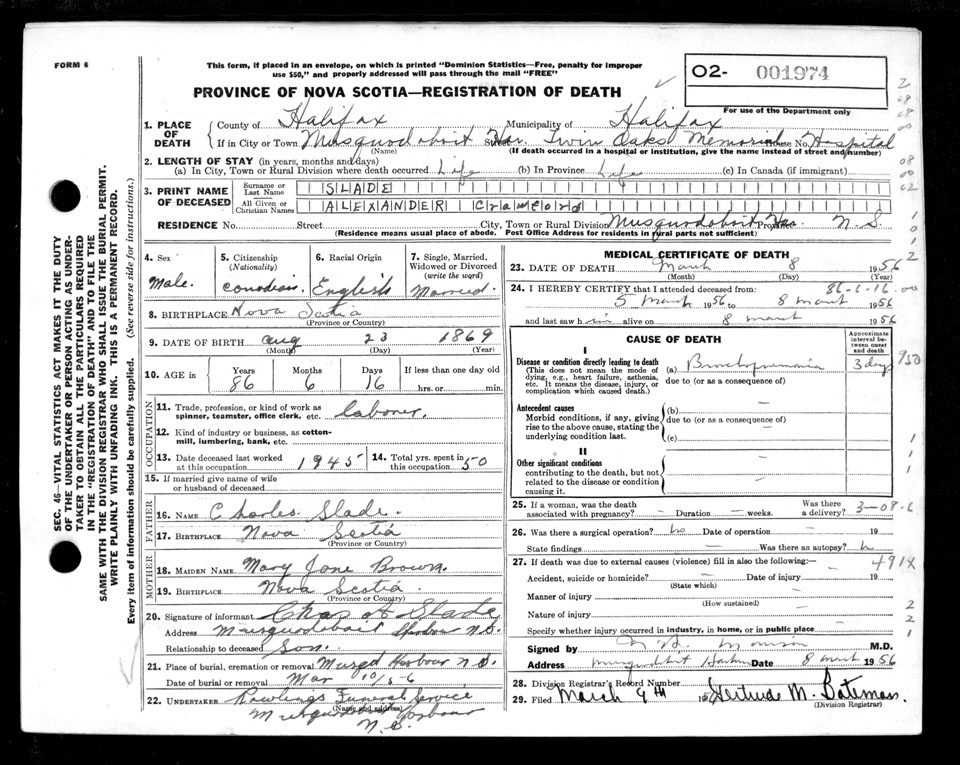 FORM 6
This form, if placed in an envelope, on which is printed "Dominion Statistics—Free, penalty for improper
use $50," and properly addressed will pass through the mail "FREE"
PROVINCE OF NOVA SCOTIA—REGISTRATION OF DEATH
O2- 001974
For use of the Department only
1. PLACE OF DEATH
County of Halifax Municipality of Halifax
If in City or Town Musquodoboit Har. Street Twin Oaks Memorial House No. Hospital
(Name) (If death occurred in a hospital or institution, give the name instead of street and number)
2. LENGTH OF STAY (in years, months and days)
(a) In City, Town or Rural Division where death occurred Life (b) In Province Life (c) In Canada (if immigrant)
3. PRINT NAME OF DECEASED
Surname or Last Name SLADE
All Given or Christian Names ALEXANDER Crawford
RESIDENCE No. Street City, Town or Rural Division Musquodoboit Har. Province N.S
(Residence means usual place of abode. Post Office Address for residents in rural parts not sufficient)
4. Sex Male.
5. Citizenship (Nationality) Canadian
6. Racial Origin English
7. Single, Married, Widowed or Divorced (write the word) Married.
8. BIRTHPLACE Nova Scotia
(Province or Country)
9. DATE OF BIRTH Aug 23 1869
(Month) (Day) (Year)
10. AGE in Years 86 Months 6 Days 16 If less than one day old hrs. or min.
OCCUPATION
11. Trade, profession, or kind of work as spinner, teamster, office clerk, etc. labourer.
12. Kind of industry or business, as cotton-mill, lumbering, bank, etc.
13. Date deceased last worked at this occupation 1945 14. Total yrs. spent in this occupation 50
15. If married give name of wife or husband of deceased
FATHER
16. NAME Charles Slade.
17. BIRTHPLACE Nova Scotia
(Province or Country)
MOTHER
18. MAIDEN NAME Mary Jane Brown.
19. BIRTHPLACE Nova Scotia
(Province or Country)
20. Signature of informant Chas A. Slade
Address Musquodoboit Harbour N.S.
Relationship to deceased Son.
21. Place of burial, cremation or removal Musqd Harbour N.S.
Date of burial or removal Mar 10/56
22. UNDERTAKER Rawlings Funeral Service
(Name and address)
Musquodoboit Harbour
N.S.
MEDICAL CERTIFICATE OF DEATH
23. DATE OF DEATH March 8 1956
(Month) (Day) (Year)
24. I HEREBY CERTIFY that I attended deceased from: 86-6-16-00
5 March 1956 to 8 March 1956
and last saw him alive on 8 March 1956
CAUSE OF DEATH
Approximate interval between onset and death
I
Disease or condition directly leading to death
(This does not mean the mode of dying, e.g., heart failure, asthenia, etc. It means the disease, injury, or complication which caused death.)
(a) Bronchopneumonia 3 days
due to (or as a consequence of)
Antecedent causes
Morbid conditions, if any, giving rise to the above cause, stating the underlying condition last.
(b) —
due to (or as a consequence of)
(c) —
II
Other significant conditions
contributing to the death, but not related to the disease or condition causing it.
25. If a woman, was the death associated with pregnancy? – Duration – weeks. Was there a delivery?
26. Was there a surgical operation? no Date of operation – 19
State findings – Was there an autopsy?
27. If death was due to external causes (violence) fill in also the following:— 491X
Accident, suicide or homicide? Date of injury 19
(State which)
Manner of injury
(How sustained)
Nature of injury
Specify whether injury occurred in industry, in home, or in public place
Signed by M.D.
Address Musquodoboit Harbour Date 8 March 1956
28. Division Registrar's Record Number
29. Filed March 9th 1956 Gertrude M. Bateman.
(Division Registrar)
SEC. 46—VITAL STATISTICS ACT MAKES IT THE DUTY
OF THE UNDERTAKER OR PERSON ACTING AS UNDER-
TAKER TO OBTAIN ALL THE PARTICULARS REQUIRED
IN THE "REGISTRATION OF DEATH" AND TO FILE THE
SAME WITH THE DIVISION REGISTRAR WHO SHALL ISSUE THE BURIAL PERMIT.
WRITE PLAINLY WITH UNFADING INK. THIS IS A PERMANENT RECORD.
Every item of information should be carefully supplied. (See reverse side for instructions.)